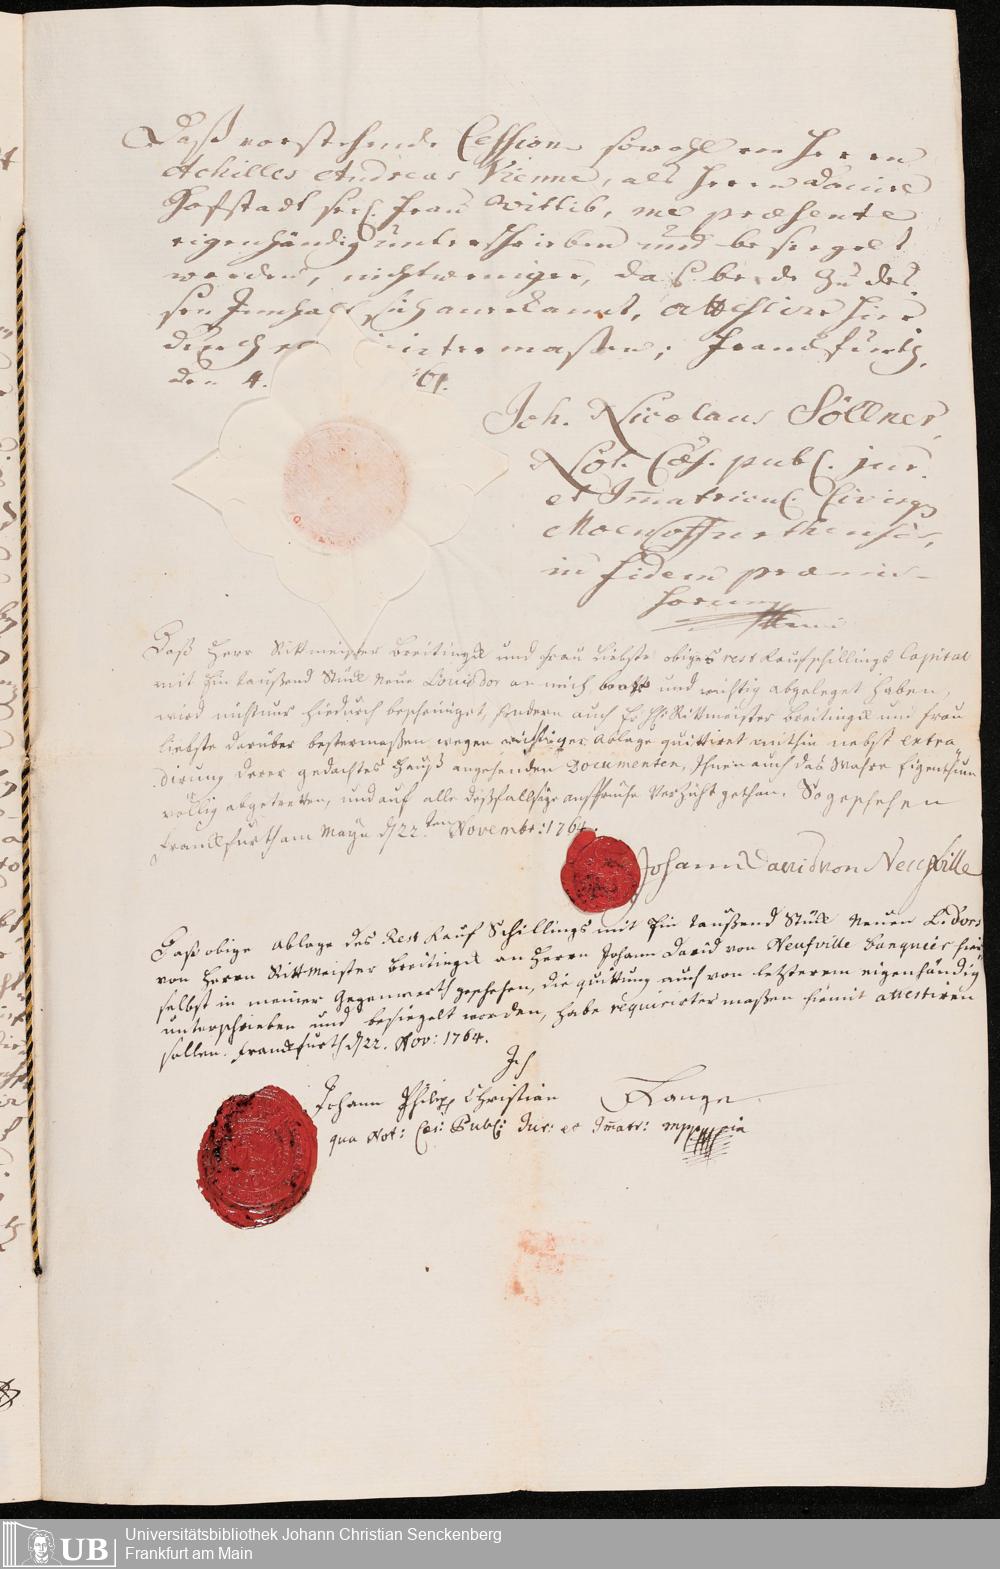 Daß vorstehende Cession sowohl von Herrn
Achilles Andreas Vienne, als Herrn Daniel
Hofstadt seel. Frau Wittib, me præsente
eigenhändig unterschrieben und besiegelt
worden, nichtweniger, daß beyde zu des-
sen Innhalt sich anerkannt, attestire hier
durch maßen; Franckfurth,
den 4. 61.
Joh. Nicolaus Söllner,
Not. Cæs. publ. jur.
et Im̄atricul. Civisqs
Moenoffurthensis,
in fidem præmis-
sorum
Daß Herr Rittmeister Breitingk und Frau Liebste obiges rest Kaufschillings Capital
mit Ein taußend Stück Neue Louisdor an mich baar und richtig abgeleget haben,
wird nicht nur hiedurch bescheiniget, sondern auch Hr. Rittmeister Breitingk und Frau
Liebste darüber bestermaßen wegen richtiger Ablage quittiret mithin nebst extra-
dirung derer gedachtes Hauß angehenden Documenten, Ihnen auch das Wahre Eigenthum
völlig abgetretten, und auf alle deßfallsige ansprüche Verzicht gethan. So geschehen
Franckfurth am Mayn d 22ten Novembr: 1764.
Johann David von Neufville
Daß obige Ablage des Rest Kauf Schillings mit Ein taußend Stück Neuen L.dors
von Herrn Rittmeister Breitingk an Herrn Johann David von Neufville Banquier hier
selbst in meiner Gegenwarth geschehen, die quittung auch von letzterem eigenhändig
unterschrieben und besiegelt worden, habe requirirter maßen hiemit attestiren
sollen. Franckfurth d 22. Nov: 1764.
Ich
Johann Philipp Christian Lange
qua Not: Cæs: Publ: Jur: et Im̄atr: mppria
UB
Universitätsbibliothek Johann Christian Senckenberg
Frankfurt am Main